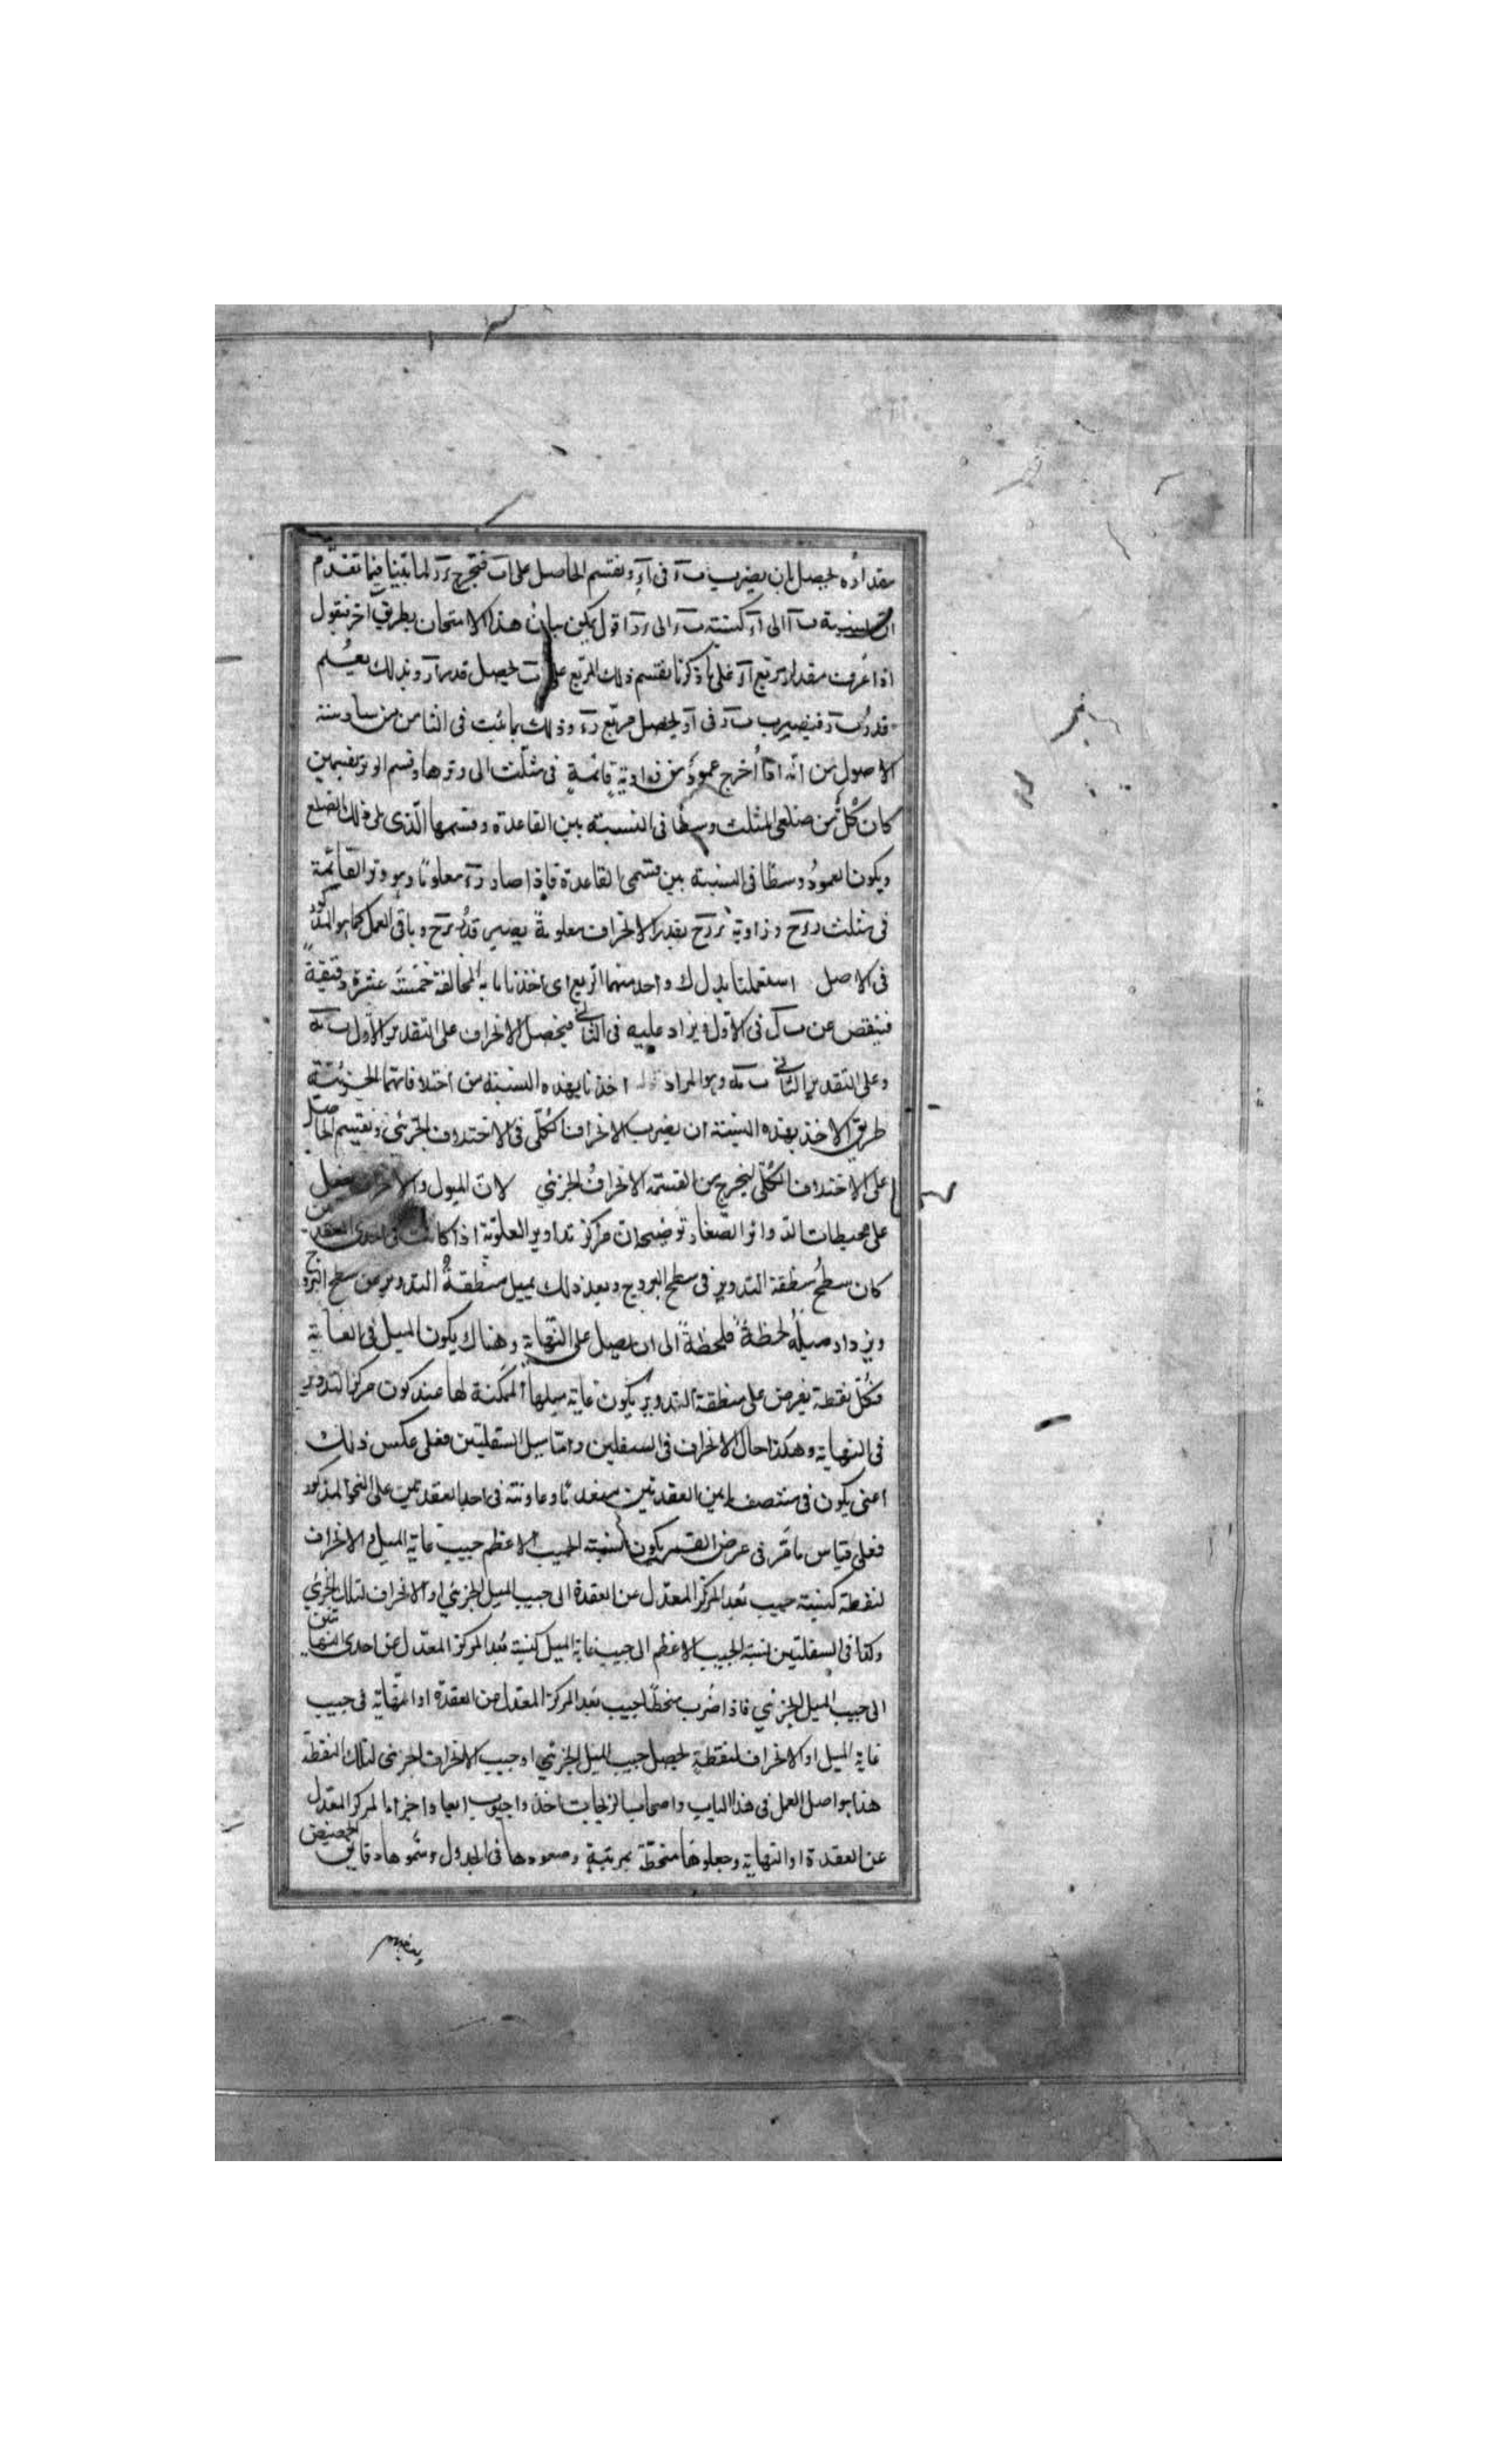 مقداره يحصل بان يضرب ب ء فى آء ونقسم الحاصل على اب فيخرج ءر لما بينا فيما تقدم
ان نسبة ب آ الى آء كنسبة ب ء الى ءر اقول يمكن بيان هذا الامتحان بطريق آخر فنقول
اذا عرفت مقدار مربع آء فعلى ما ذكرنا يقسم ذلك المربع على اب ليحصل قدر آر وبذلك يعلم
قدر ب ر فيضرب ب ر فى آر ليحصل مربع رء وذلك بما ثبت فى الثامن من سادسة
الاصول من انه اذا اخرج عمود من زاوية قائمة فى مثلث الى وترها وقسم الوتر بقسمين
كان كل من ضلعى المثلث وسطا فى النسبة بين القاعدة وقسمها الذى يلى ذلك الضلع
ويكون العمود وسطا فى النسبة بين قسمى القاعدة فاذا صار رء معلوما وهو وتر القائمة
فى مثلث ءرح وزاوية ءرح بقدر الانحراف معلومة يصير قدر ءح وباقى العمل كما هو المذكور
فى الاصل استعملنا بدل ك واحد منهما الربع اى اخذنا ما به المخالفة خمسة عشرة دقيقة
فينقص عن ب ل فى الاول ويزاد عليه فى الثانى فيحصل الانحراف على التقدير الاول
وعلى التقدير الثانى ب مه وهو المراد اخذنا بهذه النسبة من اختلافاتها الجزئية
طريق الاخذ بهذه النسبة ان يضرب الانحراف الكلى فى الاختلاف الجزئى ونقسم الحاصل
على الاختلاف الكلى ليخرج من القسمة الانحراف الجزئى لان الميول
على محيطات الدوائر الصغار توضيحه ان مراكز تداوير العلوية اذا كانت فى احدى العقدتين
كان سطح منطقة التدوير فى سطح البروج وبعد ذلك يميل منطقة التدوير عن سطح البروج
ويزداد ميله لحظة فلحظة الى ان يصل على النهاية وهناك يكون الميل فى الغاية
فكل نقطة يفرض على منطقة التدوير يكون غاية ميلها الممكنة لها عند كون مركز التدوير
فى النهاية وهكذا حال الانحراف فى السفلين واما ميل السفليتين فعلى عكس ذلك
اعنى يكون فى منتصف ما بين العقدتين منعدما وعاونته فى احد العقدتين على النحو المذكور
فعلى قياس ما مر فى عرض القمر يكون نسبة الجيب الاعظم جيب غاية الميل او الانحراف
لنقطة كنسبة جيب بعد المركز المعدل عن العقدة الى جيب الميل الجزئى او الانحراف لتلك الجزئى
وكذا فى السفليتين نسبة الجيب الاعظم الى جيب غاية الميل كنسبة بعد المركز المعدل عن احدى النهايتين
الى جيب الميل الجزئى فاذا ضرب منحطا جيب بعد المركز المعدل عن العقدة او النهاية فى جيب
غاية الميل او الانحراف لنقطة يحصل جيب الميل الجزئى او جيب الانحراف الجزئى لتلك النقطة
هذا هو اصل العمل فى هذا الباب واصحاب الزيجات اخذوا جيوب ابعاد اجزاء المركز المعدل
عن العقدة او النهاية وجعلوها منحطة بمرتبة وصنعوها فى الجدول وسموها دقايق الحصص